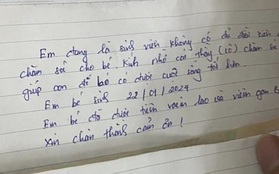 Em đang là sinh viên không có đủ điều kiện
chăm sóc cho bé. Kính nhờ các thầy (cô) chăm sóc
giúp con để bé có được cuộc sống tốt hơn.
Em bé sinh 22/01/2024
Em bé đã được tiêm vacxin lao và viêm gan B
Xin chân thành cảm ơn!